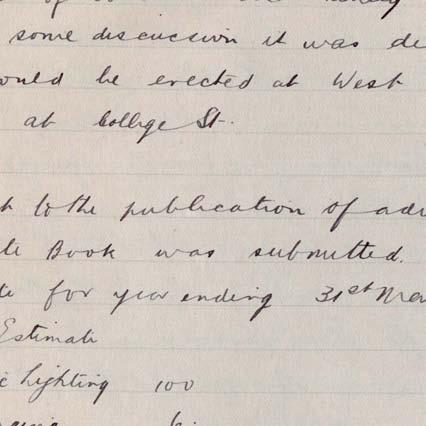 some discussion it was de
ould be erected at West
at College St.
to the publication of adv
te Book was submitted.
te for year ending 31st Mar
Estimate
ic Lighting 100